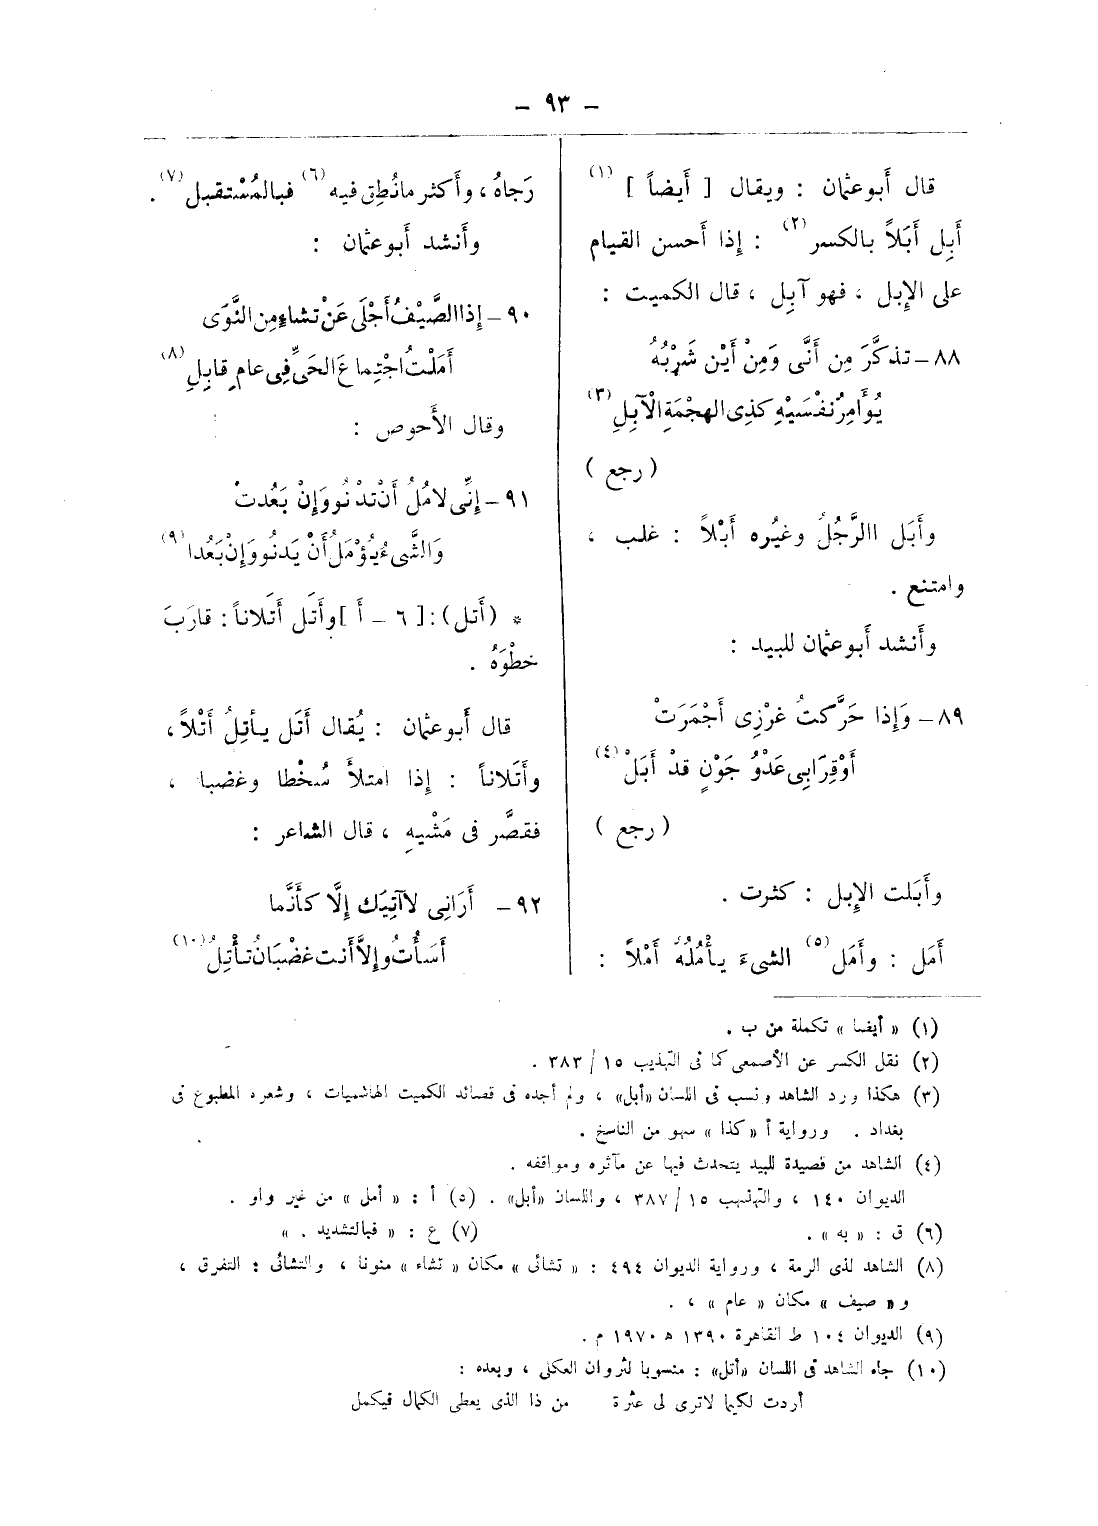 – ٩٣ –
قال أبو عثمان : ويقال [ أيضاً ] (١)
أَبِل أَبَلاً بالكسر (٢) : إِذا أَحسن القيام
على الإِبل ، فهو آبِل ، قال الكميت :
٨٨ – تذكَّرَ مِن أَنَّى وَمِنْ أَيْن شَرْبُهُ
يُؤَامِرُ نفْسَيْهِ كذِى الهجْمَةِ الْآبِلِ (٣)
( رجع )
وأَبَل االرَّجُلُ وغيُره أَبْلاً : غلب ،
وامتنع .
وأَنشد أَبو عثمان للبيد :
٨٩ – وَإِذا حَرَّكتُ غرْزِى أَجْمَرَتْ
أَوْقِرَابِى عَدْوُ جَوْنٍ قدْ أَبَلْ (٤)
( رجع )
وأَبَلت الإِبل : كثرت .
أَمَل : وأَمَل (٥) الشىءَ يأْمُلُهُ أَمْلاً :
رَجاهُ ، وأَكثر مانُطِق فيه (٦) فبالمُسْتقبل (٧) .
وأَنشد أَبو عثمان :
٩٠ – إِذا الصَّيْفُ أَجْلَى عَنْ تشاءٍ مِن النَّوَى
أَمَلْتُ اجْتِماعَ الحَىِّ فِى عامٍ قابِلِ (٨)
وقال الأَحوص :
٩١ – إِنِّى لامُلُ أَنْ تدْنُو وَإِنْ بَعُدتْ
وَالشَّىءُ يُؤْمَلُ أَنْ يَدنُو وَإِنْ بَعُدا (٩)
* (أَتل) : [ ٦ – أ ] وأَتَل أَتَلاناً : قارَبَ
خطْوَهُ .
قال أَبو عثمان : يُقال أَتَل يأتِلُ أَتْلاً ،
وأَتَلاناً : إِذا امتلأَ سُخْطا وغضبا ،
فقصَّر فى مَشْيهِ ، قال الشاعر :
٩٢ – أَرَانِى لاآتِيَك إِلَّا كأَنَّما
أَسَأْتُ وإِلاَّ أَنت غضْبَانُ تأْتِلُ (١٠)
(١) « أيضا » تكملة من ب .
(٢) نقل الكسر عن الأصمعى كما فى التهذيب ١٥ / ٣٨٣ .
(٣) هكذا ورد الشاهد ونسب فى اللسان «أبل» ، ولم أجده فى قصائد الكميت الهاشميات ، وشعره المطبوع فى
بغداد . ورواية أ «كذا » سهو من الناسخ .
(٤) الشاهد من قصيدة للبيد يتحدث فيها عن مآثره ومواقفه .
الديوان ١٤٠ ، والتهذيب ١٥ / ٣٨٧ ، واللسان «أبل» . (٥) أ : « أمل » من غير واو .
(٦) ق : « به » . (٧) ع : « فبالتشديد . »
(٨) الشاهد لذى الرمة ، ورواية الديوان ٤٩٤ : « تشائى » مكان « تشاء » منونا ، والتشائى : التفرق ،
و « صيف » مكان « عام » ، .
(٩) الديوان ١٠٤ ط القاهرة ١٣٩٠ ه ١٩٧٠ م .
(١٠) جاء الشاهد فى اللسان «أتل» : منسوبا لثروان العكلى ، وبعده :
أردت لكيما لاترى لى عثرة من ذا الذى يعطى الكمال فيكمل